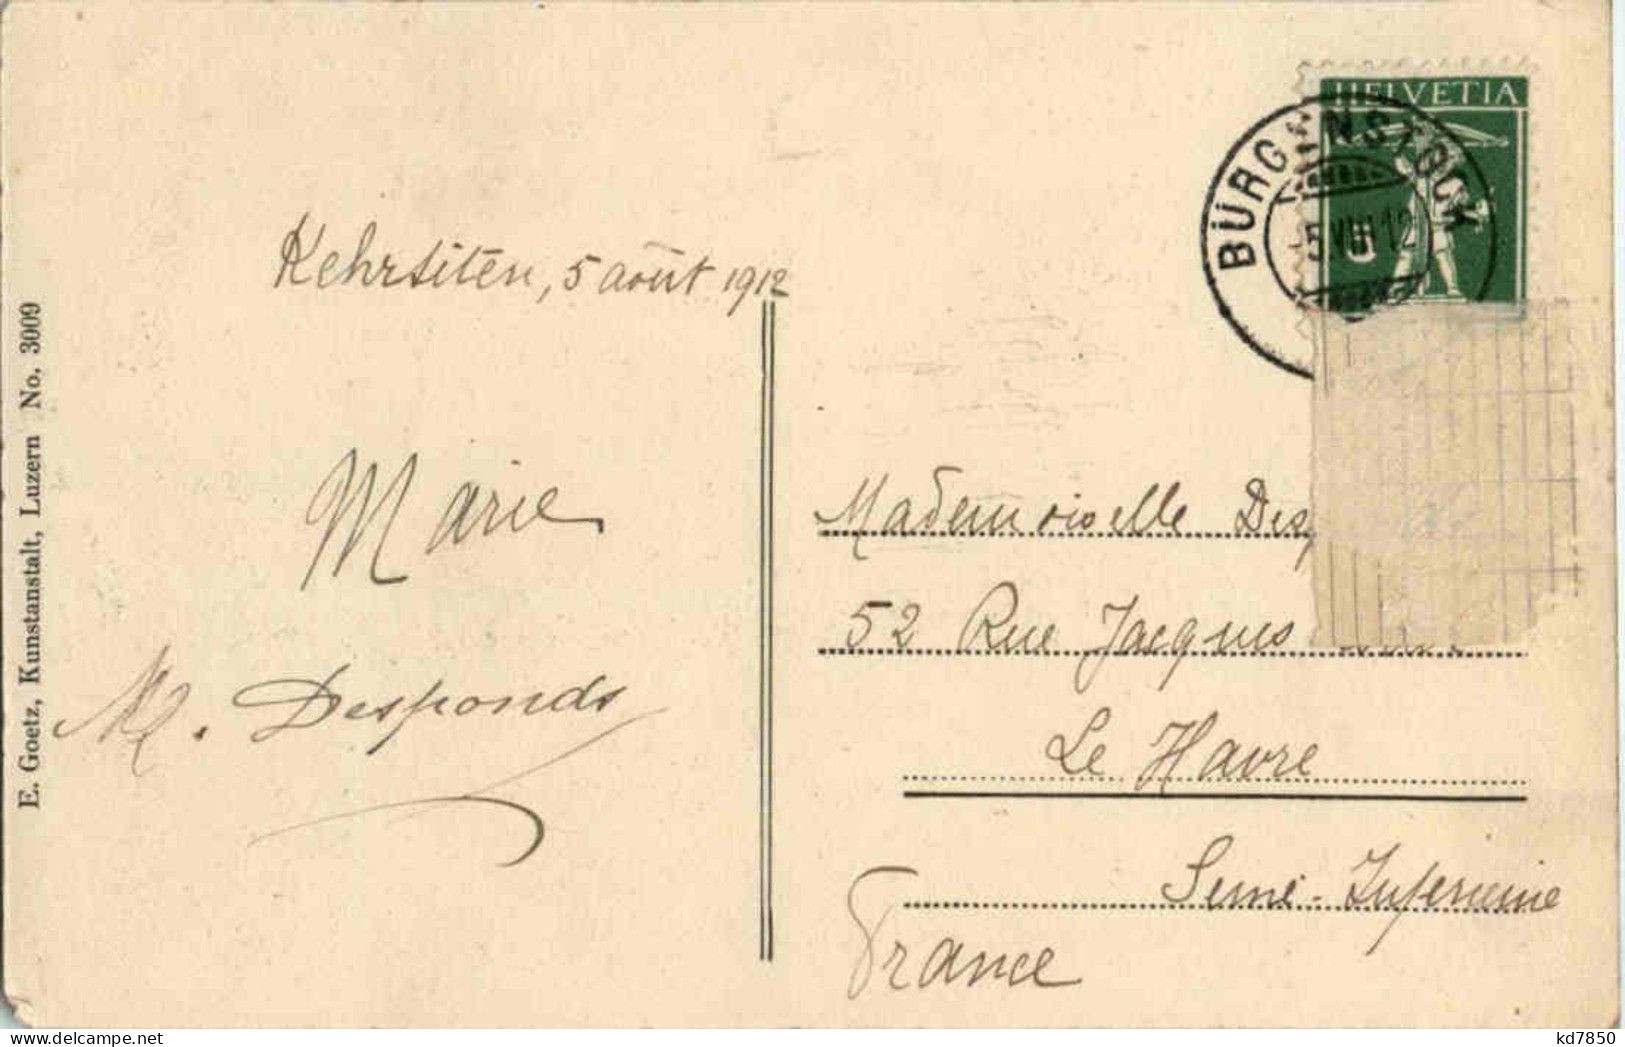 HELVETIA
BÜRGENSTOCK
-5.VIII.12
5
Kehrsiten, 5 août 1912
Marie
M. Desponds
E. Goetz, Kunstanstalt, Luzern No. 3009
Mademoiselle
52 Rue Jacques
Le Havre
Seine-Inferieure
France
kd7850